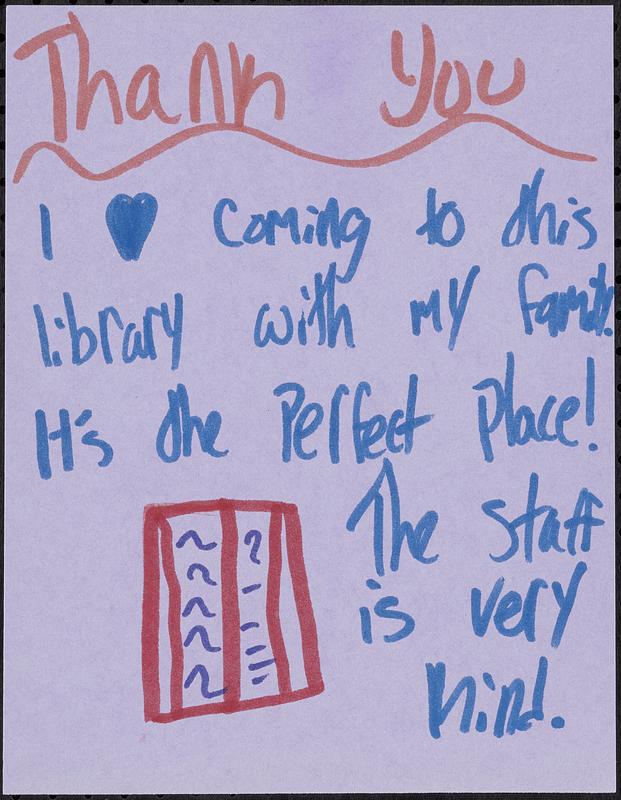 Thank You
I ♥ coming to this
library with my family.
It's the Perfect place!
The staff
is very
kind.